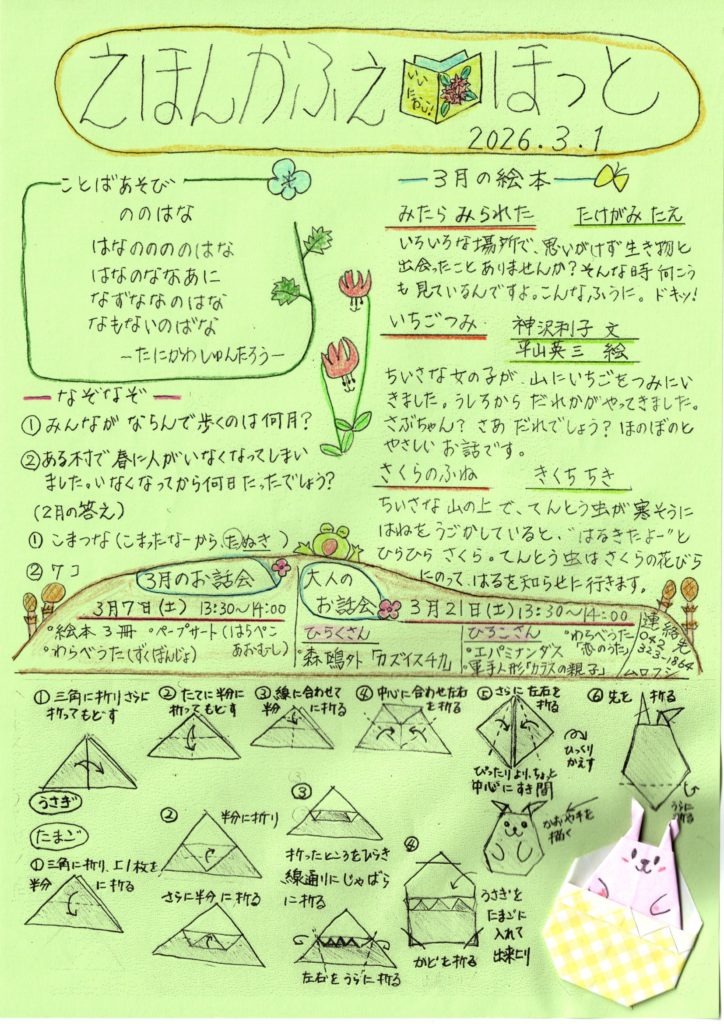 えほんかふぇ ほっと
いい
にかい!
2026.3.1
ことばあそび
ののはな
はなのののののはな
はなのななあに
なずななのはな
なもないのばな
ーたにかわしゅんたろうー
なぞなぞ
①みんなが ならんで歩くのは何月?
②ある村で春に人がいなくなってしまい
ました。いなくなってから何日たったでしょう?
(2月の答え)
① こまつな(こまったなーから、たぬき)
② 7コ
3月の絵本
みたら みられた たけがみ たえ
いろいろな場所で、思いがけず生き物と
出会ったことありませんか?そんな時何こう
も見ているんですよ。こんなふうに。ドキッ!
いちごつみ 神沢利子 文
平山英三 絵
ちいさな女の子が、山にいちごをつみにい
きました。うしろから だれかがやってきました。
さぶちゃん? さあ だれでしょう? ほのぼのと
やさしい お話です。
さくらのふね きくち ちき
ちいさな 山の上で、てんとう虫が寒そうに
はねを うごかしていると、“はるきたよー”と
ひらひら さくら。てんとう虫はさくらの花びら
にのって、はるを知らせに行きます。
3月のお話会
3月7日(土) 13:30〜14:00
・絵本 3冊 ・ペープサート(はらぺこ
あおむし)
・わらべうた(ずくぼんじょ)
大人の
お話会
3月21日(土)13:30〜14:00
ひらくさん
森鴎外「カズイスチカ」
ひろこさん
・エパミナンダス
・わらべうた
「恋のうた」
・軍手人形「カラスの親子」
連絡先
042
323-1864
ムロフシ
①三角に折りさらに
折ってもどす
②たてに半分に
折ってもどす
③線に合わせて
半分に折る
④中心に合わせ左右
を折る
⑤さらに左右を
折る
ぴったりより、ちょっと
中心にすき間
ひっくり
かえす
⑥先を折る
うらに
折る
うさぎ
かおや手を
描く
たまご
①三角に折り、上1枚を
半分に折る
② 半分に折り
さらに半分に折る
③
折ったところをひらき
線通りにじゃばら
に折る
左右をうらに折る
④
かどを折る
うさぎを
たまごに
入れて
出来上り